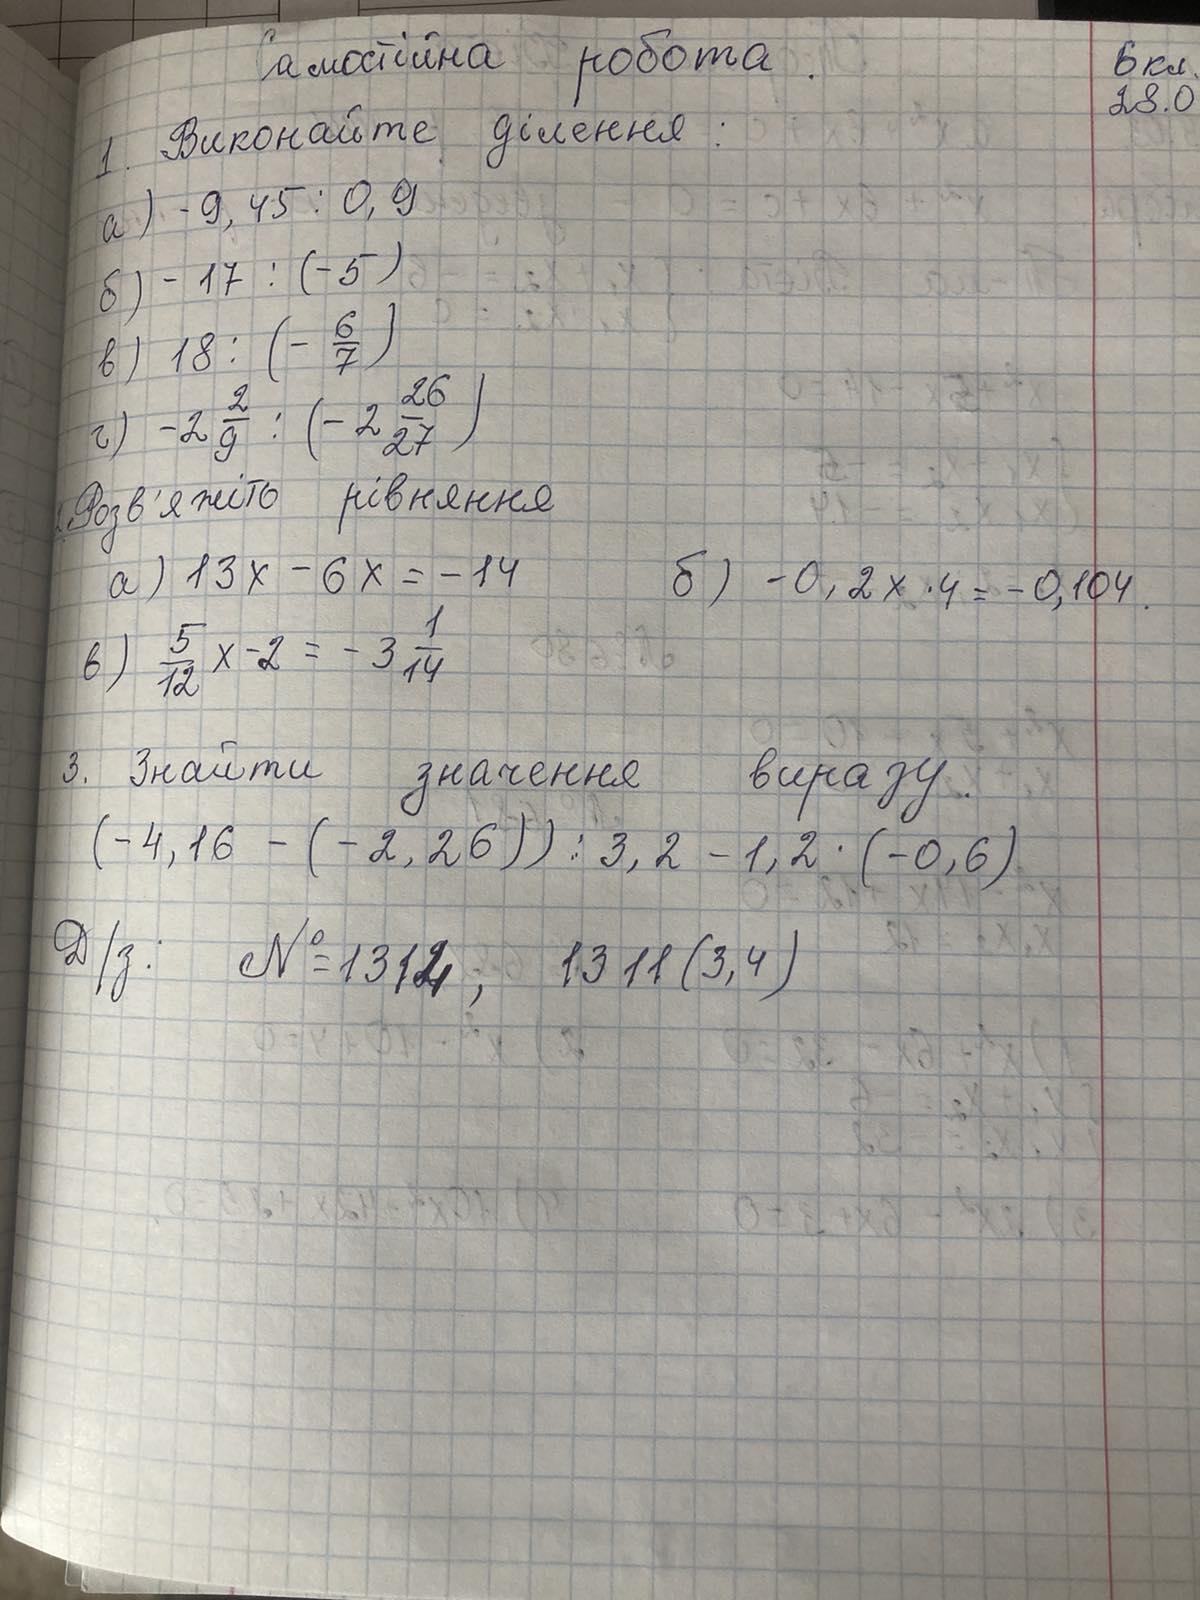 Самостійна робота.
6 кл.
28.0
1. Виконайте ділення:
а) -9,45 : 0,9
б) -17 : (-5)
в) 18 : (-6/7)
г) -2 2/9 : (-2 26/27)
2. Розв'яжіть рівняння
а) 13x - 6x = -14 б) -0,2x · 4 = -0,104.
в) 5/12 x - 2 = -3 1/14
3. Знайти значення виразу.
(-4,16 - (-2,26)) : 3,2 - 1,2 · (-0,6)
Д/з: № 1312, 1311 (3,4)